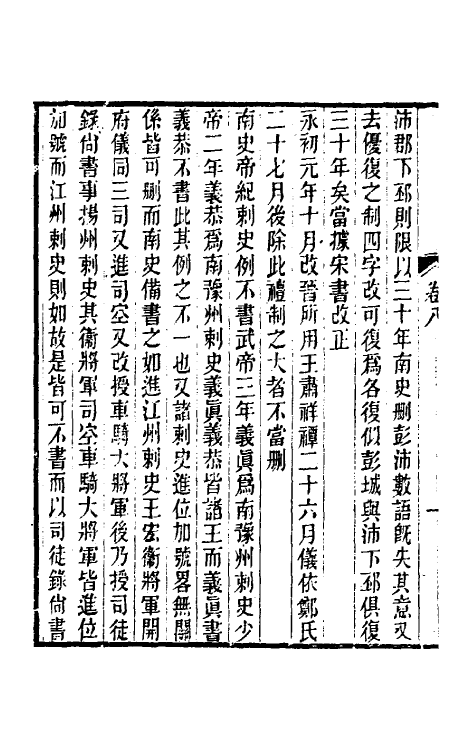 卷八
一
沛郡下邳則限以三十年南史删彭沛數語旣失其意又
去優復之制四字改可復爲各復似彭城與沛下邳俱復
三十年矣當據宋書改正
永初元年十月改晉所用王肅祥禫二十六月儀依鄭氏
二十七月後除此禮制之大者不當删
南史帝紀刺史例不書武帝三年義眞爲南豫州刺史少
帝二年義恭爲南豫州刺史義眞義恭皆諸王而義眞書
義恭不書此其例之不一也又諸刺史進位加號畧無關
係皆可删而南史備書之如進江州刺史王宏衞將軍開
府儀同三司又進司空又改授車騎大將軍後乃授司徒
錄尙書事揚州刺史其衞將軍司空車騎大將軍皆進位
加號而江州刺史則如故是皆可不書而以司徒錄尙書